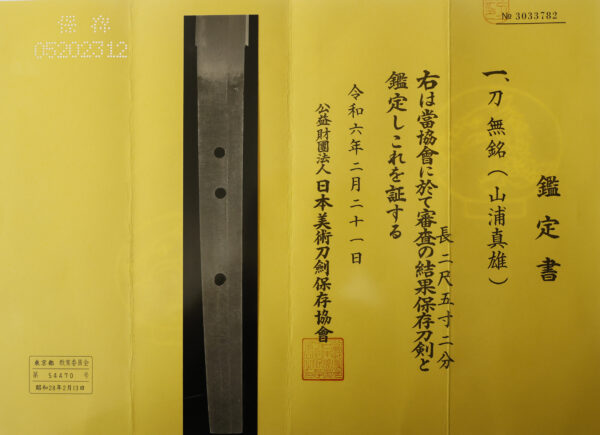 № 3033782
鑑定書
一、刀 無銘(山浦真雄)
長二尺五寸二分
右は當協會に於て審査の結果保存刀剣と
鑑定しこれを証する
令和六年二月二十一日
公益財團法人 日本美術刀劍保存協會
保存
05202312
東京都 教育委員会
第 54470 号
昭和28年2月13日